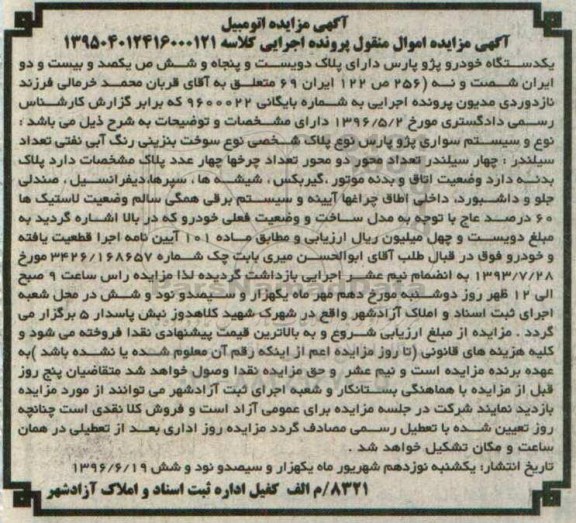 آگهی مزایده اتومبیل
آگهی مزایده اموال منقول پرونده اجرایی کلاسه ۱۳۹۵۰۴۰۱۲۴۱۶۰۰۰۱۲۱
یکدستگاه خودرو پژو پارس دارای پلاک دویست و پنجاه و شش ص یکصد و بیست و دو
ایران شصت و نه (۲۵۶ ص ۱۲۲ ایران ۶۹ متعلق به آقای قربان محمد خرمالی فرزند
نازدوردی مدیون پرونده اجرایی به شماره بایگانی ۹۶۰۰۰۲۲ که برابر گزارش کارشناس
رسمی دادگستری مورخ ۱۳۹۶/۵/۲ دارای مشخصات و توضیحات به شرح ذیل می باشد :
نوع و سیستم سواری پژو پارس نوع پلاک شخصی نوع سوخت بنزینی رنگ آبی نفتی تعداد
سیلندر : چهار سیلندر تعداد محور دو محور تعداد چرخها چهار عدد پلاک مشخصات دارد پلاک
بدنه دارد وضعیت اتاق و بدنه موتور ،گیربکس ، شیشه ها ، سپرها،دیفرانسیل ، صندلی
جلو و داشبورد، داخلی اطاق چراغها آیینه و سیستم برقی همگی سالم وضعیت لاستیک ها
۶۰ درصد عاج با توجه به مدل ساخت و وضعیت فعلی خودرو که در بالا اشاره گردید به
مبلغ دویست و چهل میلیون ریال ارزیابی و مطابق ماده ۱۰۱ آیین نامه اجرا قطعیت یافته
و خودرو فوق در قبال طلب آقای ابوالحسن میری بابت چک شماره ۳۴۲۶/۱۶۸۶۵۷ مورخ
۱۳۹۳/۷/۲۸ به انضمام نیم عشر اجرایی بازداشت گردیده لذا مزایده راس ساعت ۹ صبح
الی ۱۲ ظهر روز دوشنبه مورخ دهم مهر ماه یکهزار و سیصدو نود و شش در محل شعبه
اجرای ثبت اسناد و املاک آزادشهر واقع در شهرک شهید کلاهدوز نبش پاسدار ۵ برگزار می
گردد . مزایده از مبلغ ارزیابی شروع و به بالاترین قیمت پیشنهادی نقدا فروخته می شود و
کلیه هزینه های قانونی (تا روز مزایده اعم از اینکه رقم آن معلوم شده یا نشده باشد )به
عهده برنده مزایده است و نیم عشر و حق مزایده نقدا وصول خواهد شد متقاضیان پنج روز
قبل از مزایده با هماهنگی بستانکار و شعبه اجرای ثبت آزادشهر می توانند از مورد مزایده
بازدید نمایند شرکت در جلسه مزایده برای عمومی آزاد است و فروش کلا نقدی است چنانچه
روز تعیین شده با تعطیل رسمی مصادف گردد مزایده روز اداری بعد از تعطیلی در همان
ساعت و مکان تشکیل خواهد شد .
تاریخ انتشار: یکشنبه نوزدهم شهریور ماه یکهزار و سیصدو نود و شش ۱۳۹۶/۶/۱۹
۸۳۲۱/م الف کفیل اداره ثبت اسناد و املاک آزادشهر